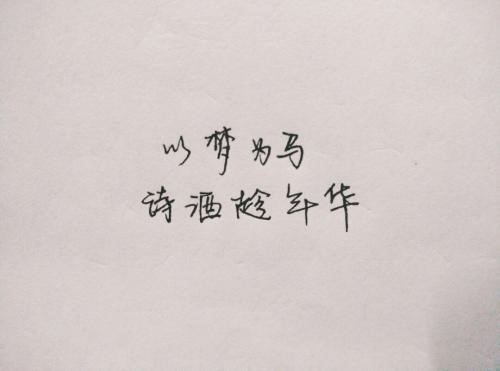 以梦为马
诗酒趁年华